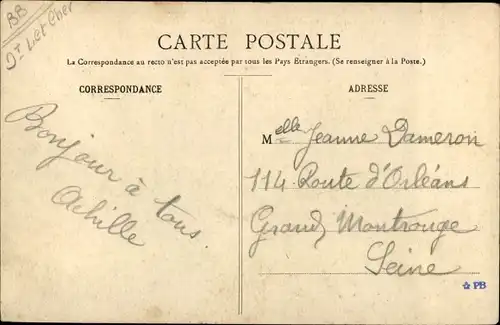 BB
Dt L. et Cher
CARTE POSTALE
La Correspondance au recto n'est pas acceptée par tous les Pays Étrangers. (Se renseigner à la Poste.)
CORRESPONDANCE
Bonjour à tous.
Achille
ADRESSE
Melle Jeanne Dameron
114 Route d'Orléans
Grand Montrouge
Seine
PB